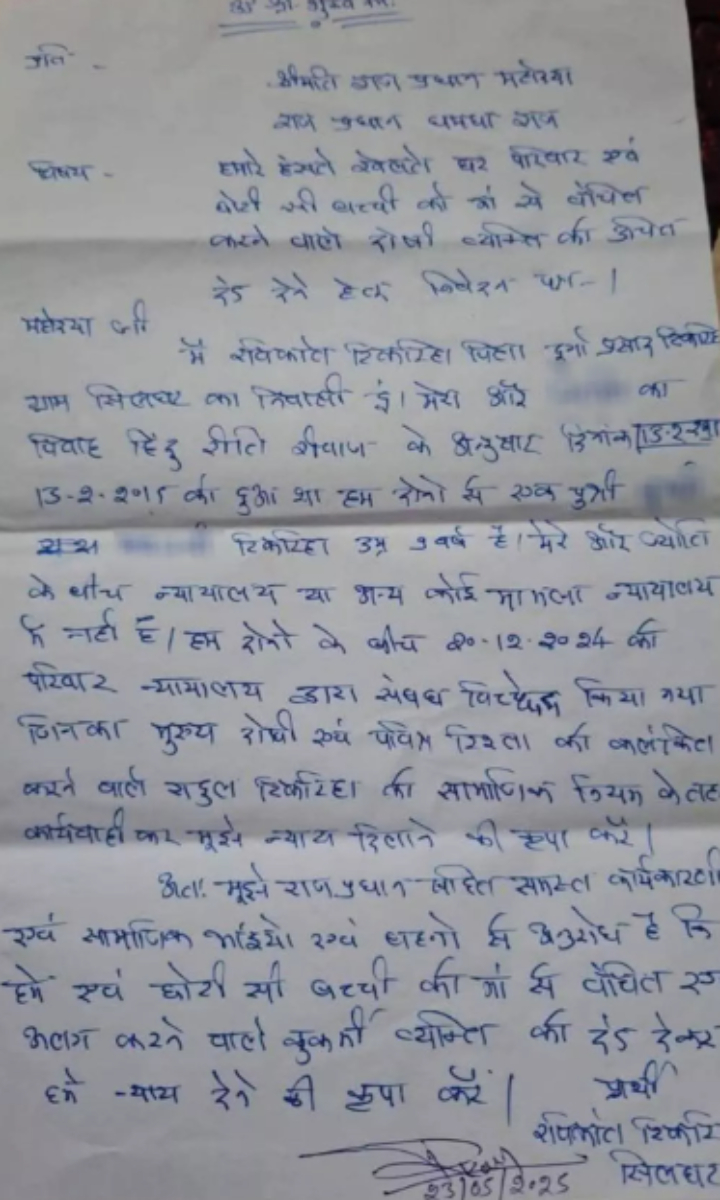 प्रति -
श्रीमति राज प्रधान महोदया
राज प्रधान धमधा राज
विषय - हमारे हंसते खेलते घर परिवार एवं
छोटी सी बच्ची को मां से वंचित
करने वाले दोषी व्यक्ति को उचित
दंड देने हेतु निवेदन पत्र - ।
महोदया जी
मैं रविकांत टिकरिहा पिता दुर्गा प्रसाद टिकरिहा
ग्राम सिलघट का निवासी हूं। मेरा और का
विवाह हिंदु रीति रीवाज के अनुसार दिनांक
13-2-2015 को हुआ था हम दोनो से एक पुत्री
टिकरिहा उम्र 9 वर्ष है। मेरे और ज्योति
के बीच न्यायालय या अन्य कोई मामला न्यायालय
में नहीं है। हम दोनो के बीच 20-12-2024 को
परिवार न्यायालय द्वारा संबंध विच्छेद किया गया
जिनका मुख्य दोषी एवं पवित्र रिश्ता को कलंकित
करने वाले राहुल टिकरिहा को सामाजिक नियम के तह
कार्यवाही कर मुझे न्याय दिलाने की कृपा करें।
अतः मुझे राज प्रधान सहित समस्त कार्यकारणी
एवं सामाजिक भाईयो एवं बहनो से अनुरोध है कि
हमे एवं छोटी सी बच्ची को मां से वंचित एवं
अलग करने वाले कुकर्मी व्यक्ति को दंड देकर
हमे न्याय देने की कृपा करें।
प्रार्थी
रविकांत टिकरि
सिलघट
23/05/2025